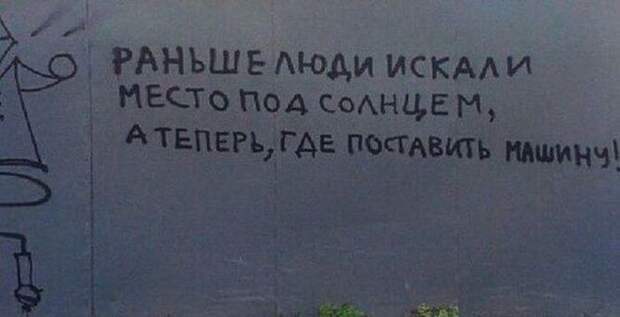 РАНЬШЕ ЛЮДИ ИСКАЛИ
МЕСТО ПОД СОЛНЦЕМ,
А ТЕПЕРЬ, ГДЕ ПОСТАВИТЬ МАШИНУ!